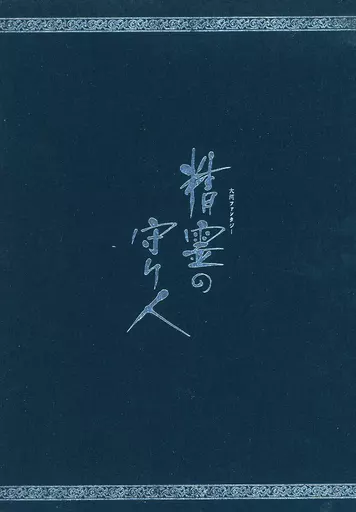 大河ファンタジー
精霊の
守り人